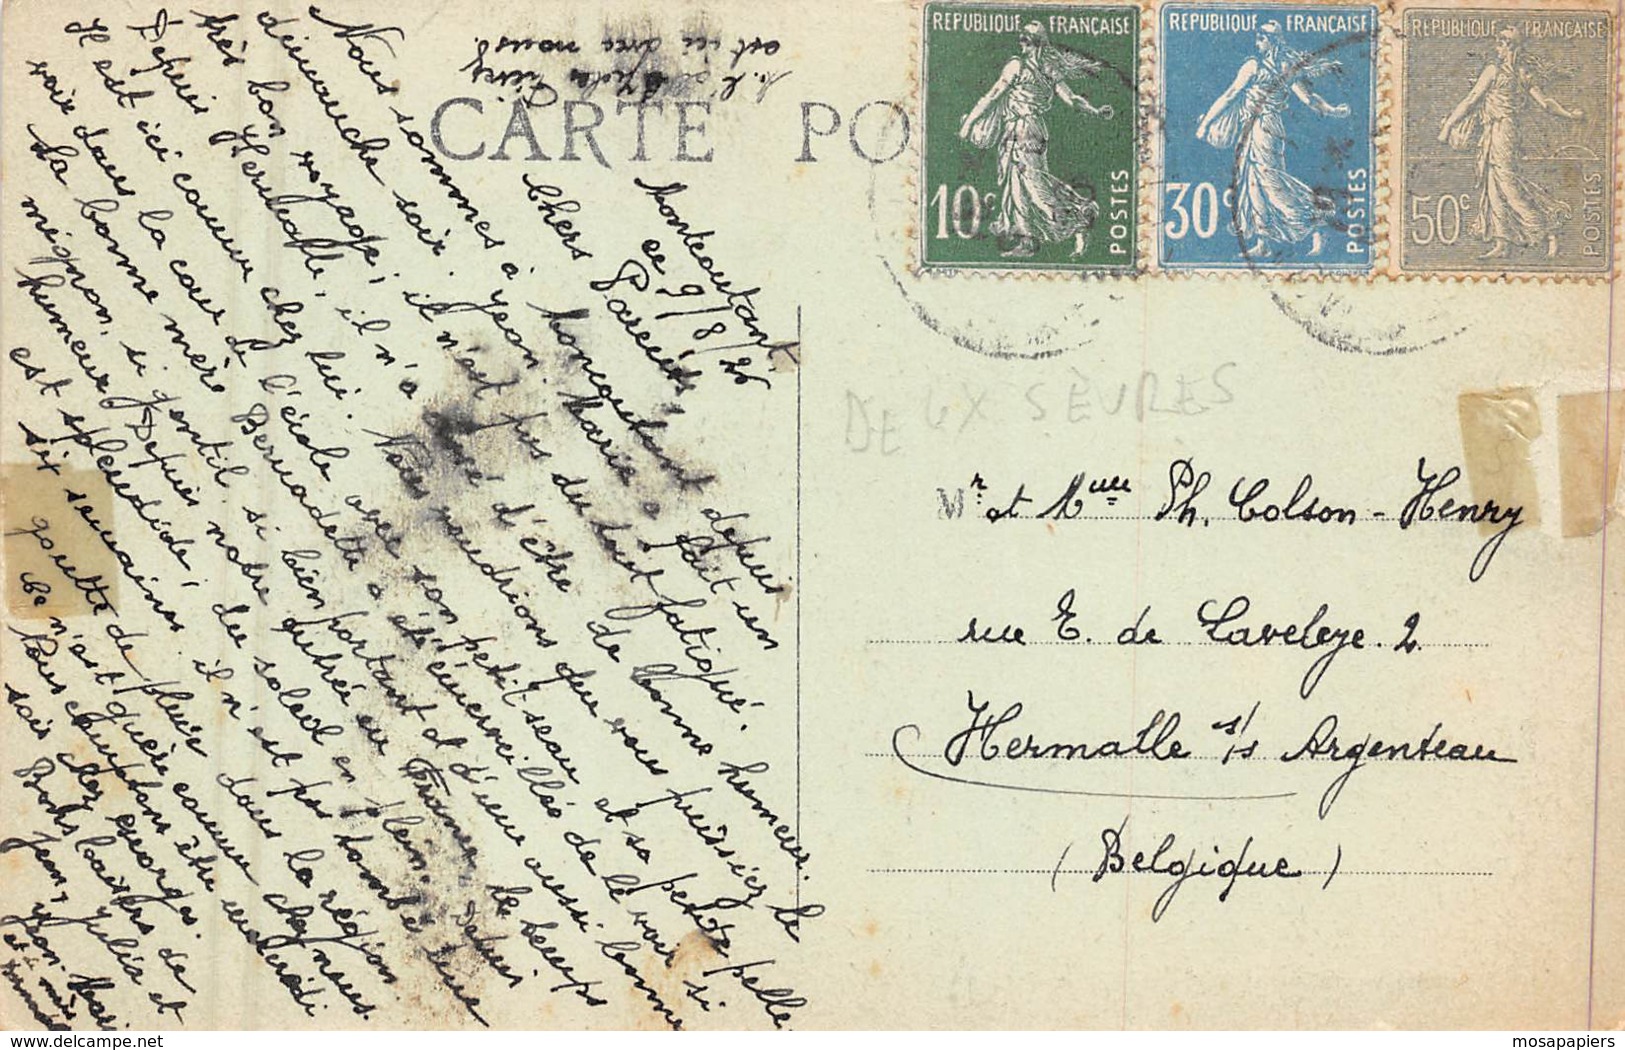 CARTE PO
RÉPUBLIQUE FRANÇAISE
10c
POSTES
RÉPUBLIQUE FRANÇAISE
30c
POSTES
RÉPUBLIQUE FRANÇAISE
50c
POSTES
est ici avec nous.
Moncoutant
ce 9/8/26
Chers Parents,
Nous sommes à Moncoutant depuis
dimanche soir. Jean. Marie a fait un
très bon voyage, il n'est pas du tout fatigué.
Depuis Hermalle, il n'a cessé d'être de bonne humeur.
Il est ici comme chez lui. Nous voudrions que vous puissiez le
voir dans la cour de l'école avec son petit seau et sa petite pelle.
La bonne mère Bernadette a été émerveillée de le voir si
mignon, si gentil, si bien portant et d'une aussi bonne
humeur. Depuis notre entrée en France, le temps
est splendide, du soleil en plein. Depuis
six semaines il n'est pas tombé une
goutte de pluie dans la région.
Ce n'est guère comme chez nous.
Nous comptons être mercredi
soir chez Georges.
Bons baisers de
Jean, Julia et
DEUX SÈVRES
Mr et Mme Ph. Colson-Henry
rue E. de Laveleye. 2
Hermalle s/s Argenteau
(Belgique)
www.delcampe.net
mosapapiers